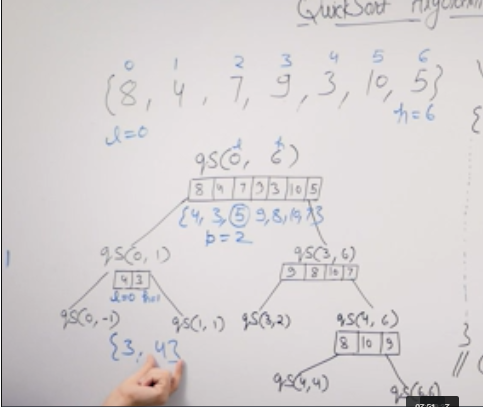 QuickSort Algorithm
0 1 2 3 4 5 6
{8, 4, 7, 9, 3, 10, 5}
l=0 h=6
l h
qs(0, 6)
8 4 7 9 3 10 5
{4, 3, 5 9, 8, 10, 7}
p=2
qs(0, 1) qs(3, 6)
4 3 9 8 10 7
l=0 h=1
qs(0, -1) qs(1, 1) qs(3,2) qs(4, 6)
{3, 4} 8 10 9
qs(4,4) qs(6,6)